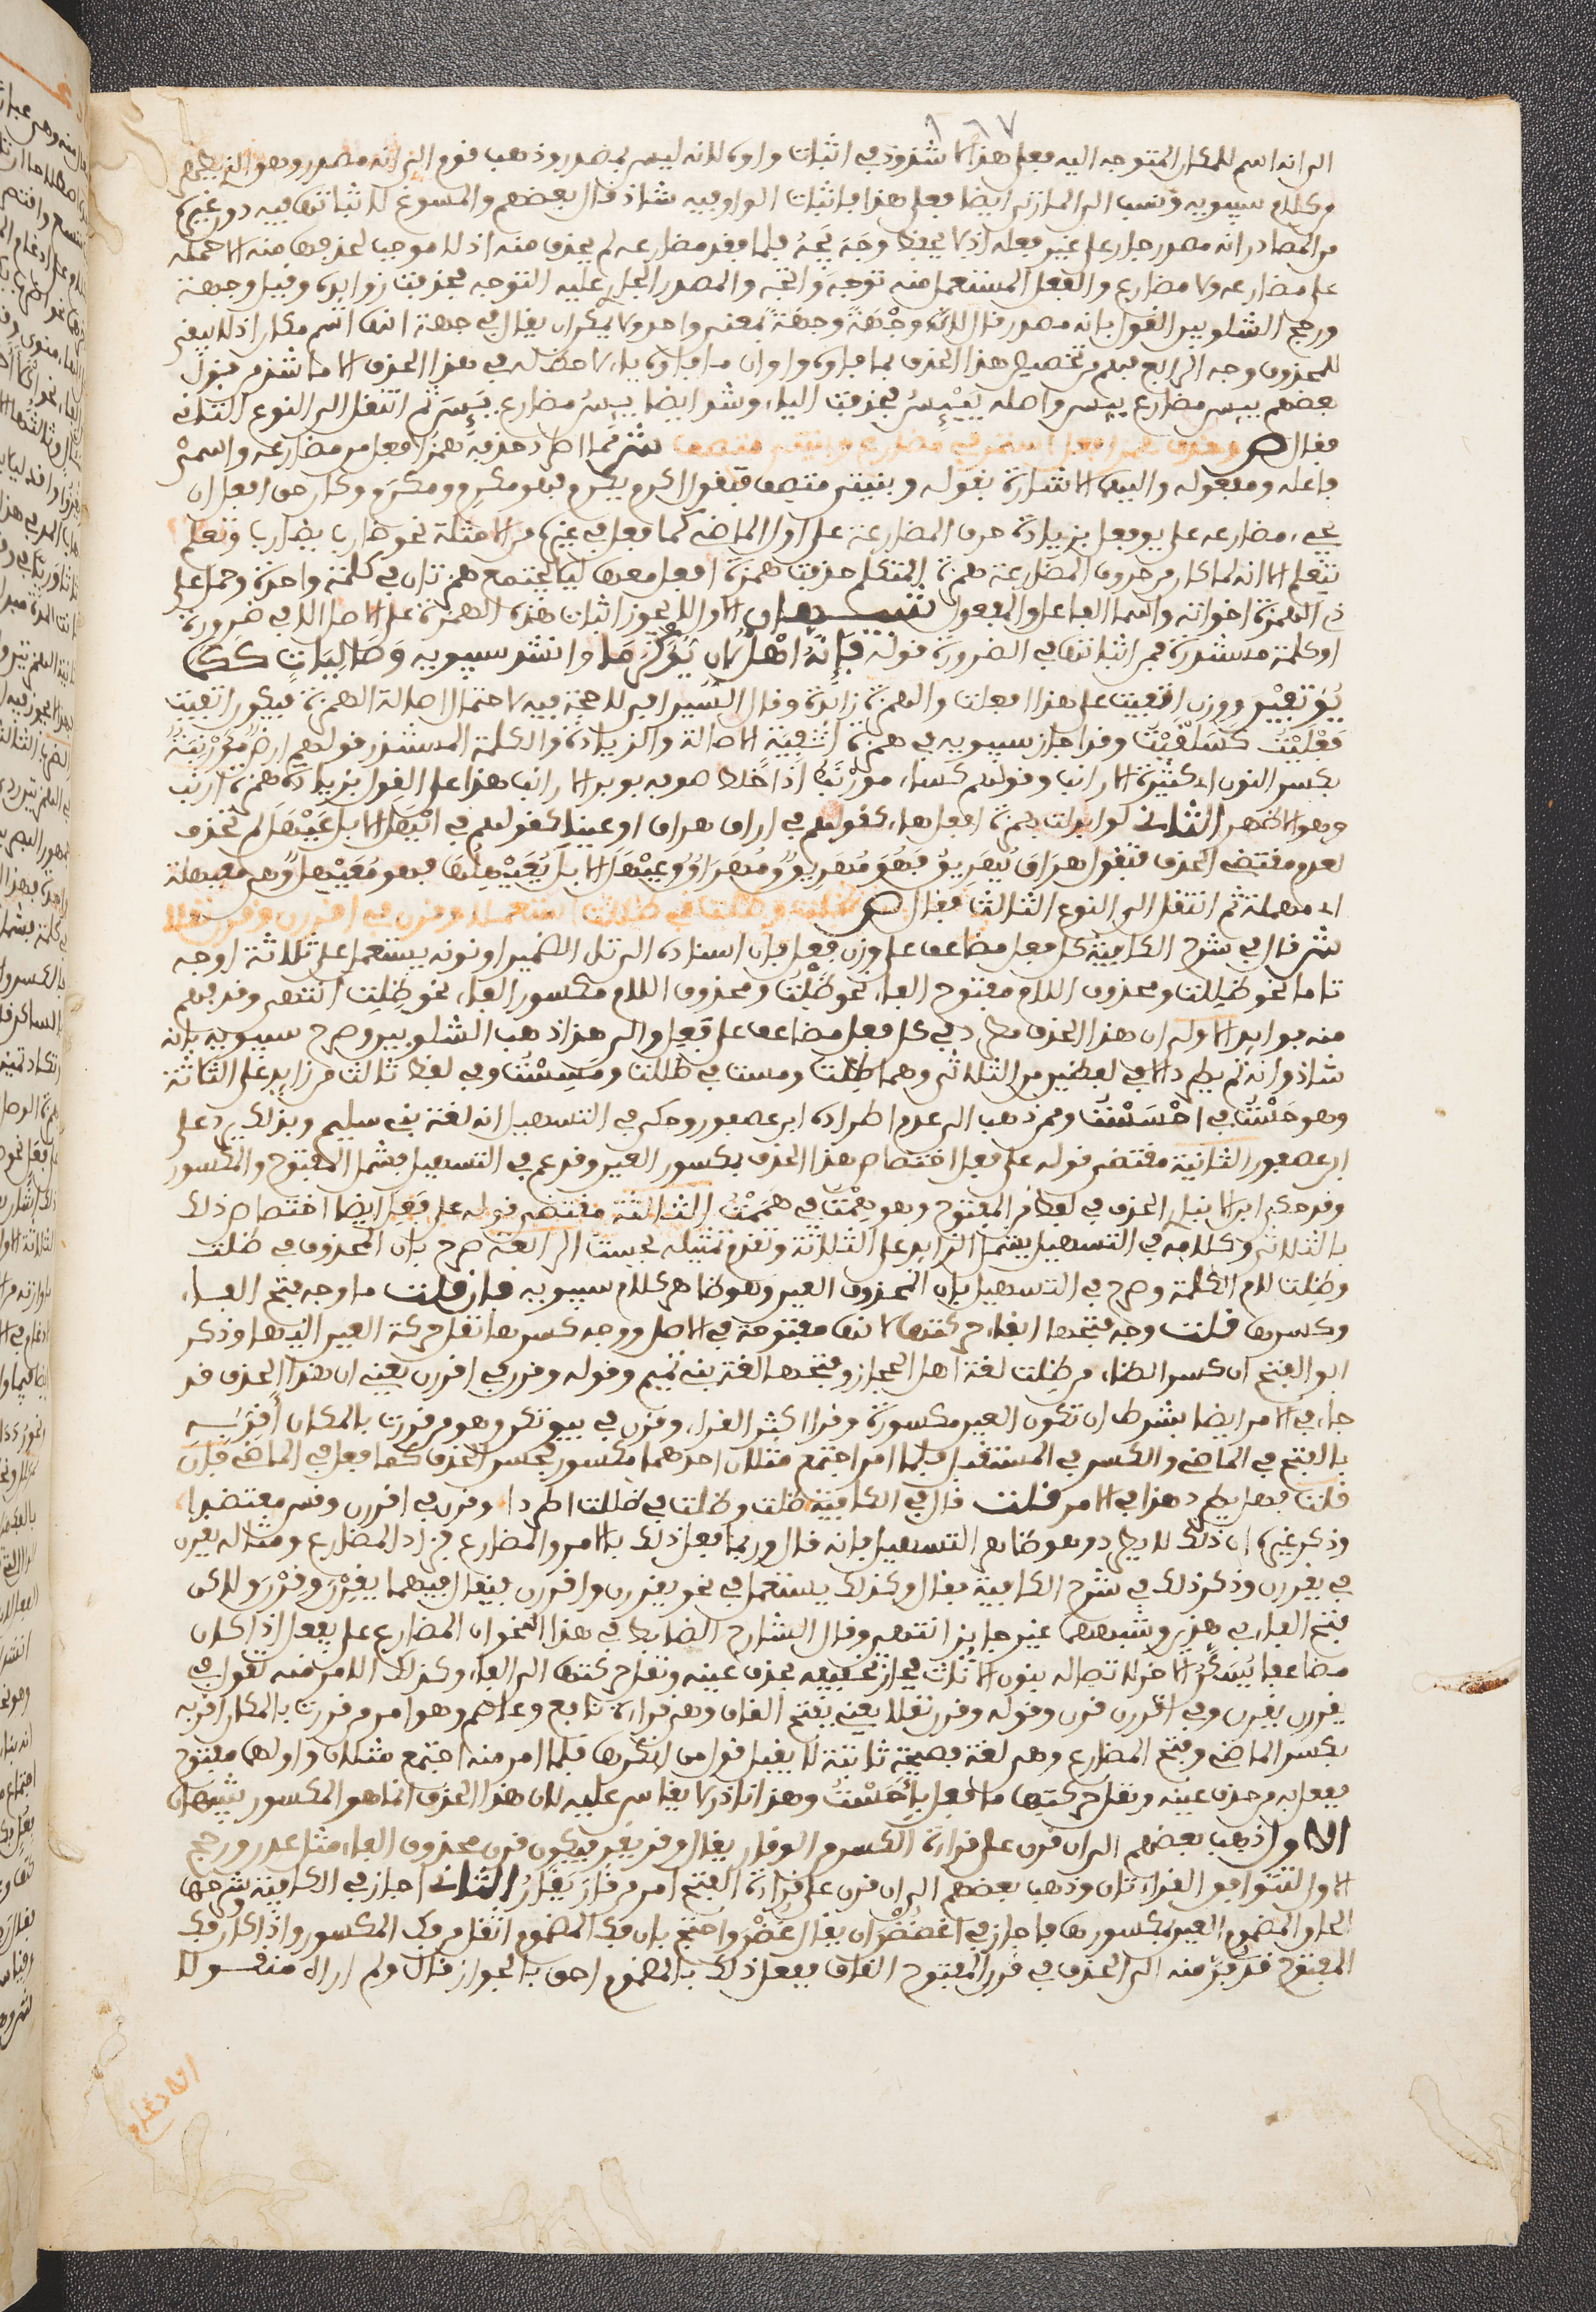 ١٦٧
الى انه اسم للمكان المتوجه اليه فعلى هذا لا شذوذ في اثبات واوه لانه ليس بمصدر وذهب قوم الى انه مصدر وهو الذي يظهر
من كلام سيبويه ونسب الى المازني ايضا فعلى هذا فاثبات الواو فيه شاذ قال بعضهم والمسوغ لاثباتها فيه دون غيره
من المصادر انه مصدر جار على غير فعله اذ لا يحفظ وجه يجه فلما فقد مضارعه لم يحذف منه اذ لا موجب لحذفها منه الا حمله
على مضارعه ولا مضارع والفعل المستعمل منه توجه واتجه والمصدر الجاري عليه التوجه فحذفت زوايده وقيل وجهة
ورجح الشلوبين القول بانه مصدر قال لانه وجهة وجهة بمعنى واحد ولا يمكن ان يقال في جهة انها اسم مكان اذ لا يبقى
للحذف وجه الرابع فهم من تخصيص هذا الحذف بما فاوه واو ان ما فاوه ياء لا حظ له في هذا الحذف الا ما شذ من قول
بعضهم يسر مضارع يسر واصله ييسر فحذفت الياء وشذ ايضا يبس مضارع يبس ثم انتقل الى النوع الثاني
فقال ص وحذف همز افعل استمر في مضارع وبنيتي متصف ش مما اطرد حذفه همز افعل من مضارعه واسمي
فاعله ومفعوله واليهما الاشارة بقوله وبنيتي متصف فتقول اكرم يكرم فهو مكرم ومكرم وكان حق افعل ان
يجيء مضارعه على يوفعل بزيادة حرف المضارعة على اول الماضي كما فعل في غيره من الامثلة نحو ضارب يضارب وتعلم
يتعلم الا انه لما كان من حروف المضارعة همزة المتكلم حذفت همزة افعل معها ليلا يجتمع همزتان في كلمة واحدة وحمل على
ذي الهمزة اخواته واسما الفاعل والمفعول تنبيهان الاول لا يجوز اثبات هذه الهمزة على الاصل الا في ضرورة
او كلمة مستندرة فمن اثباتها في الضرورة قوله فإنه اهل لان يؤكرما وانشد سيبويه وصاليات ككما
يؤثفين ووزن اثفيت على هذا افعلت والهمزة زائدة وقال السيرافي لا حجة فيه لاحتمال اصالة الهمزة فيكون اثفيت
فعليت كسلقيت وقد اجاز سيبويه في همزة اثفية الاصالة والزيادة والكلمة المستندرة قولهم ارض مؤرنبة
بكسر النون اي كثيرة الارانب وقولهم كساء مؤرنب اذا خلط صوفه بوبر الارانب هذا على القول بزيادة همزة ارنب
وهو الاظهر الثاني لو ابدلت همزة افعل هاء كقولهم في اراق هراق او عينا كقولهم في انهل الابل عيهل لم تحذف
لعدم مقتضي الحذف فتقول هراق يهريق فهو مهريق ومهراق وعيهل الابل يعيهلها فهو معيهل وهي معيهلة
اي مهملة ثم انتقل الى النوع الثالث فقال ص ظلت وظلت في ظللت استعملا وقرن في اقررن وقرن نقلا
ش قال في شرح الكافية كل فعل مضاعف على وزن فعل فان اسناده الى تاء الضمير او نونه يستعمل على ثلاثة اوجه
تاما نحو ظللت ومحذوف اللام مفتوح الفاء نحو ظلت ومحذوف اللام مكسور الفاء نحو ظلت انتهى وقد فهم
منه فوايد الاولى ان هذا الحذف مطرد في كل فعل مضاعف على فعل والى هذا ذهب الشلوبين وصرح سيبويه بانه
شاذ وانه لم يطرد الا في لفظين من الثلاثي وهما ظلت ومست في ظللت ومسست وفي لفظ ثالث من زايد على الثلاثة
وهو حست في احسست وممن ذهب الى عدم اطراده ابن عصفور وحكى في التسهيل انه لغة بني سليم وبذلك يرد على
ابن عصفور الثانية مقتضى قوله على فعل اختصاص هذا الحذف بمكسور العين وقد عم في التسهيل فشمل المفتوح والمكسور
وقد حكى ابن الانباري الحذف في لفظ من المفتوح وهو همت في هممت الثالثة مقتضى قوله على فعل ايضا اختصاص ذلك
بالثلاثي وكلامه في التسهيل يشمل الزايد على الثلاثة وتقدم تمثيله بحست الرابعة صرح بان المحذوف في ظلت
وظلت لام الكلمة وصرح في التسهيل بان المحذوف العين وهو ظاهر كلام سيبويه فان قلت ما وجه فتح الفاء
وكسرها قلت وجه فتحها ابقاء حركتها لانها مفتوحة في الاصل ووجه كسرها نقل حركة العين اليها وذكر
ابو الفتح ان كسر الظاء من ظلت لغة اهل الحجاز وفتحها لغة بني تميم وقوله وقرن في اقررن يعني ان هذا الحذف قد
جاء في الامر ايضا بشرط ان تكون العين مكسورة وقرا اكثر القراء وقرن في بيوتكن وهو من قررت بالمكان اقر به
بالفتح في الماضي والكسر في المستقبل فلما امر اجتمع مثلان احدهما مكسور فحسن الحذف كما فعل في الماضي فان
قلت فهل يطرد هذا في الامر قلت قال في الكافية ظلت وظلت في ظللت اطردا وقرن في اقررن وقس معتضدا
وذكر غيره ان ذلك لا يطرد وهو ظاهر التسهيل فانه قال وربما فعل ذلك بالامر والمضارع فزاد المضارع ومثاله يقرن
في يقررن وذكر ذلك في شرح الكافية فقال وكذلك يستعمل في نحو يقررن واقررن فيقال فيهما يقرن وقرن ولكن
فتح الفاء في هذين وشبههما غير جايز انتهى وقال الشارح الضابط في هذا النحو ان المضارع على يفعل اذا كان
مضاعفا يسكن الاخر لاتصاله بنون الاناث فجاز تخفيفه بحذف عينه ونقل حركتها الى الفاء وكذلك الامر منه تقول في
يقررن يقرن وفي اقررن قرن وقوله وقرن نقلا يعني بفتح القاف وهي قراءة نافع وعاصم وهو امر من قررت بالمكان اقر به
بكسر الماضي وفتح المضارع وهي لغة فصيحة ثابتة لا يقبل قول من انكرها فلما امر منه اجتمع مثلان واولهما مفتوح
ففعل به من حذف عينه ونقل حركتها ما فعل باحست وهذا نادر لا يقاس عليه لان هذا الحذف انما هو للمكسور تنبيهان
الاول ذهب بعضهم الى ان قرن على قراءة الكسر من الوقار يقال وقر يقر فيكون قرن محذوف الفاء مثل عدن ورجح
الاول لتتوافق القراءتان وذهب بعضهم الى ان قرن على قراءة الفتح امر من قار يقار الثاني اجاز في الكافية وشرحها
الحاق المضموم العين بمكسورها فاجاز في اغضضن ان يقال غضن واحتج بان فك المضموم اثقل من فك المكسور واذا كان فك
المفتوح قد فر منه الى الحذف في قرن المفتوح القاف ففعل ذلك بالمضموم احق بالجواز قال ولم اره منقولا
الادغام